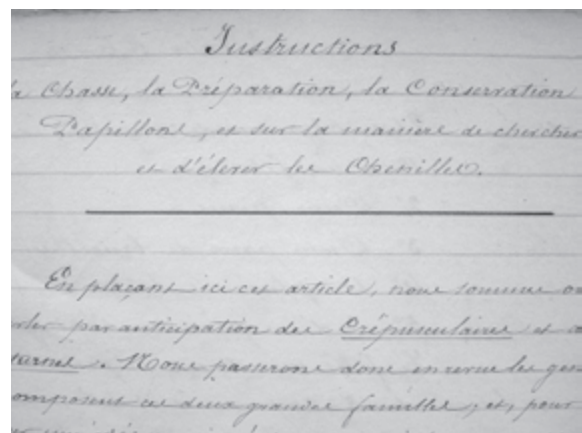 Instructions
la Chasse, la Préparation, la Conservation
Papillons, et sur la manière de chercher
et d'élever les Chenilles.
En plaçant ici cet article, nous sommes
par anticipation des Crépusculaires et
. Nous passerons donc en revue les
composent ces deux grandes familles, et, pour